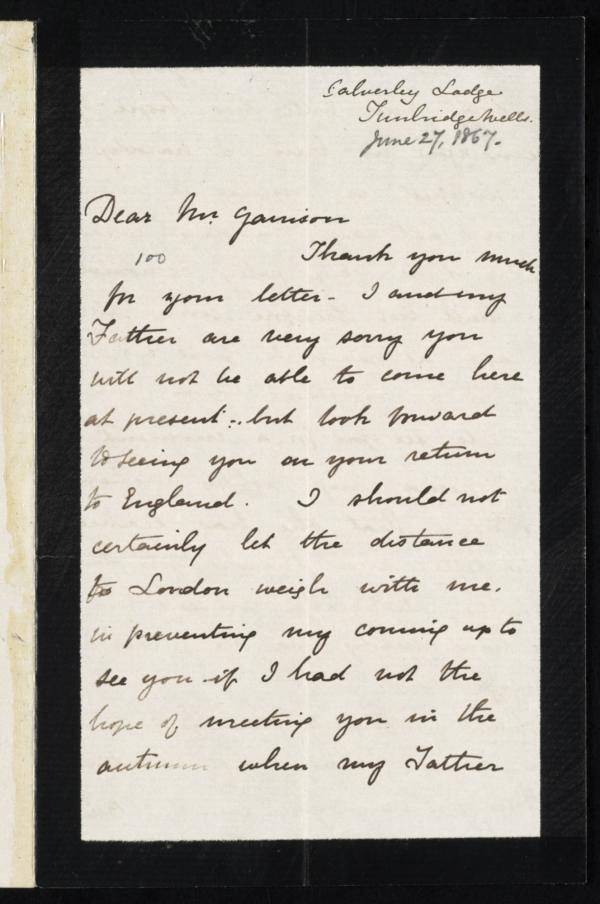 Calverley Lodge
Tunbridge Wells.
June 27, 1867.
Dear Mr. Garrison
100
Thank you much
for your letter - I and my
Father are very sorry you
will not be able to come here
at present :- but look forward
to seeing you on your return
to England. I should not
certainly let the distance
to London weigh with me.
in preventing my coming up to
see you if I had not the
hope of meeting you in the
autumn when my Father